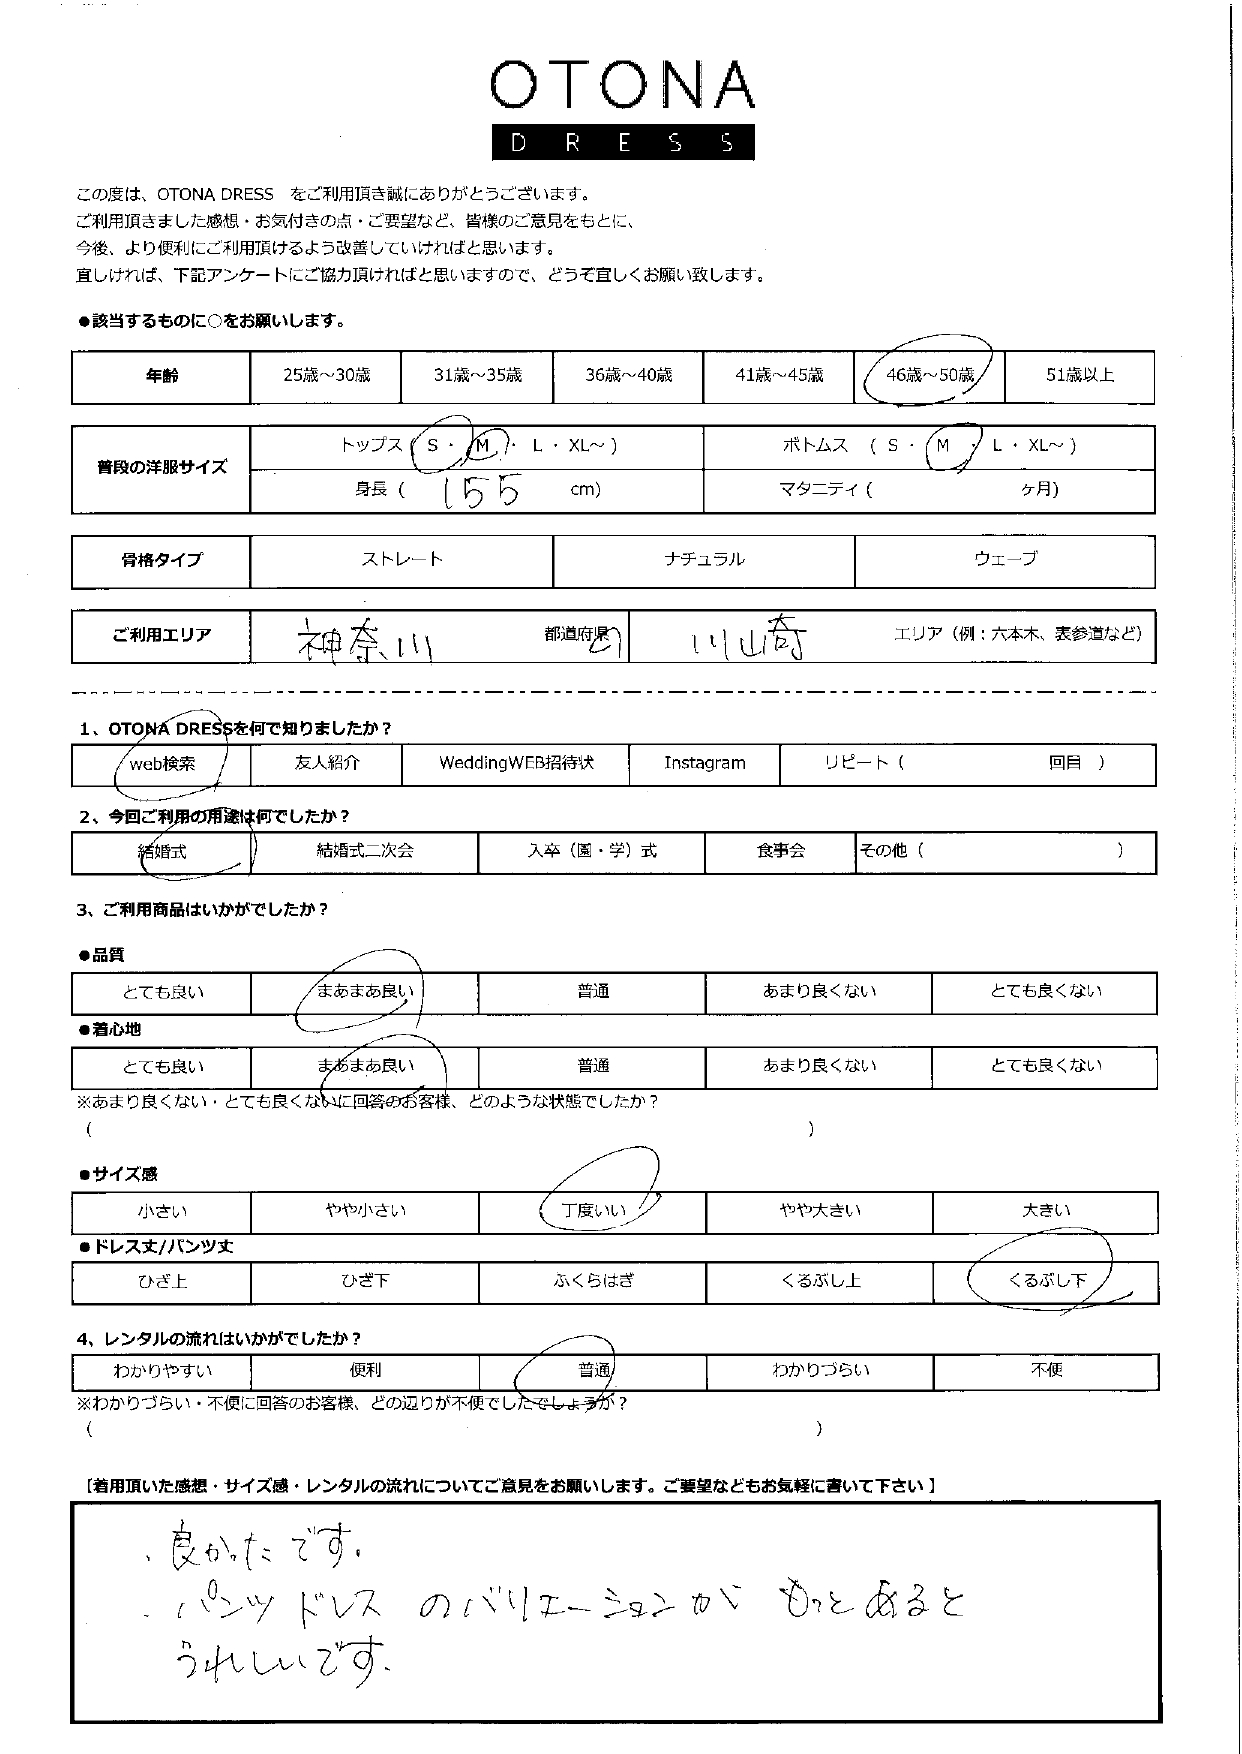 OTONA
DRESS
この度は、OTONA DRESS をご利用頂き誠にありがとうございます。
ご利用頂きました感想・お気付きの点・ご要望など、皆様のご意見をもとに、
今後、より便利にご利用頂けるよう改善していければと思います。
宜しければ、下記アンケートにご協力頂ければと思いますので、どうぞ宜しくお願い致します。
●該当するものに○をお願いします。
年齢 25歳～30歳 31歳～35歳 36歳～40歳 41歳～45歳 46歳～50歳 51歳以上
普段の洋服サイズ トップス ( S ・ M ・ L ・ XL～ ) ボトムス ( S ・ M ・ L ・ XL～ )
身長 ( 155 cm) マタニティ ( ヶ月)
骨格タイプ ストレート ナチュラル ウェーブ
ご利用エリア 神奈川 都道府県 川崎 エリア（例：六本木、表参道など）
1、OTONA DRESSを何で知りましたか？
web検索 友人紹介 WeddingWEB招待状 Instagram リピート ( 回目 )
2、今回ご利用の用途は何でしたか？
結婚式 結婚式二次会 入卒（園・学）式 食事会 その他 ( )
3、ご利用商品はいかがでしたか？
●品質
とても良い まあまあ良い 普通 あまり良くない とても良くない
●着心地
とても良い まあまあ良い 普通 あまり良くない とても良くない
※あまり良くない・とても良くないに回答のお客様、どのような状態でしたか？
( )
●サイズ感
小さい やや小さい 丁度いい やや大きい 大きい
●ドレス丈/パンツ丈
ひざ上 ひざ下 ふくらはぎ くるぶし上 くるぶし下
4、レンタルの流れはいかがでしたか？
わかりやすい 便利 普通 わかりづらい 不便
※わかりづらい・不便に回答のお客様、どの辺りが不便でしたでしょうか？
( )
【着用頂いた感想・サイズ感・レンタルの流れについてご意見をお願いします。ご要望などもお気軽に書いて下さい】
・良かったです。
・パンツドレスのバリエーションが もっとあると
うれしいです。